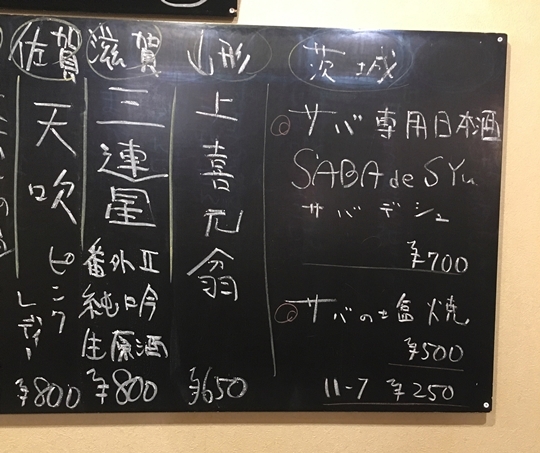 茨城
サバ専用日本酒
SABA de SYu
サバデシュ
¥700
サバの塩焼
¥500
ハーフ ¥250
山形
上喜元
翁
¥650
滋賀
三連星
番外II
純吟
生原酒
¥800
佐賀
天吹
ピンク
レディー
¥800